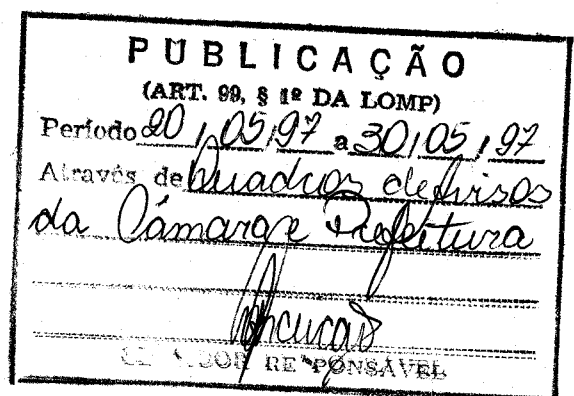 PUBLICAÇÃO
(ART. 99, § 1º DA LOMP)
Período 20, 05, 97 a 30, 05, 97
Através de Quadros de Avisos
da Câmara e Prefeitura
RESPONSÁVEL